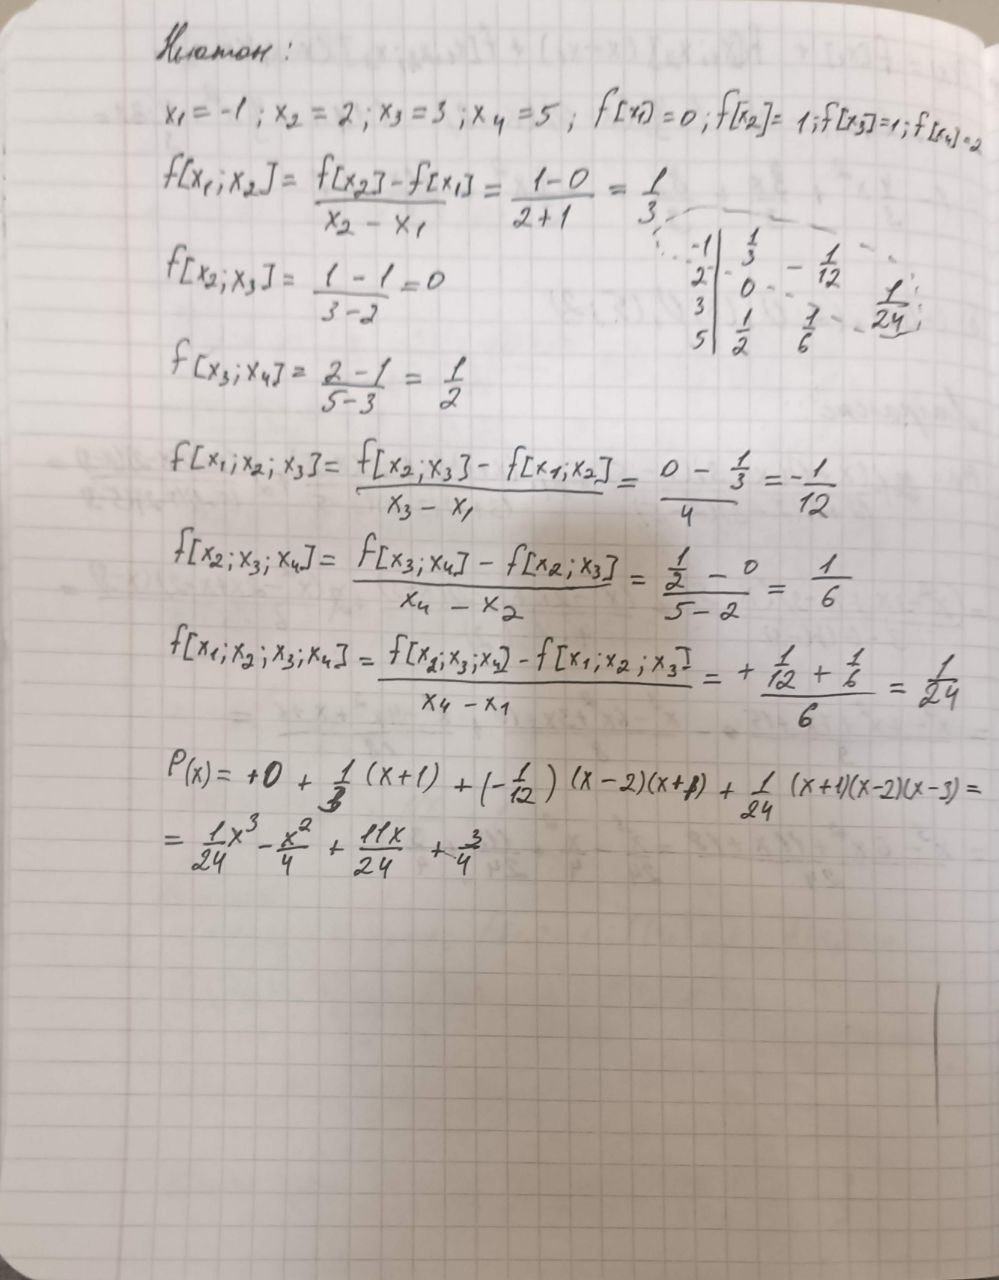 Ньютон:
x₁ = -1 ; x₂ = 2 ; x₃ = 3 ; x₄ = 5 ; f[x₁] = 0 ; f[x₂] = 1 ; f[x₃] = 1 ; f[x₄] = 2
f[x₁; x₂] = (f[x₂] - f[x₁])/(x₂ - x₁) = (1 - 0)/(2 + 1) = 1/3
-1 | 1/3
2 | 0 - 1/12
3 | 1/24
5 | 1/2 1/6
f[x₂; x₃] = (1 - 1)/(3 - 2) = 0
f[x₃; x₄] = (2 - 1)/(5 - 3) = 1/2
f[x₁; x₂; x₃] = (f[x₂; x₃] - f[x₁; x₂])/(x₃ - x₁) = (0 - 1/3)/4 = -1/12
f[x₂; x₃; x₄] = (f[x₃; x₄] - f[x₂; x₃])/(x₄ - x₂) = (1/2 - 0)/(5 - 2) = 1/6
f[x₁; x₂; x₃; x₄] = (f[x₂; x₃; x₄] - f[x₁; x₂; x₃])/(x₄ - x₁) = + (1/12 + 1/6)/6 = 1/24
P(x) = +0 + 1/3 (x+1) + (-1/12) (x-2)(x+1) + 1/24 (x+1)(x-2)(x-3) =
= 1/24 x³ - x²/4 + 11x/24 + 3/4